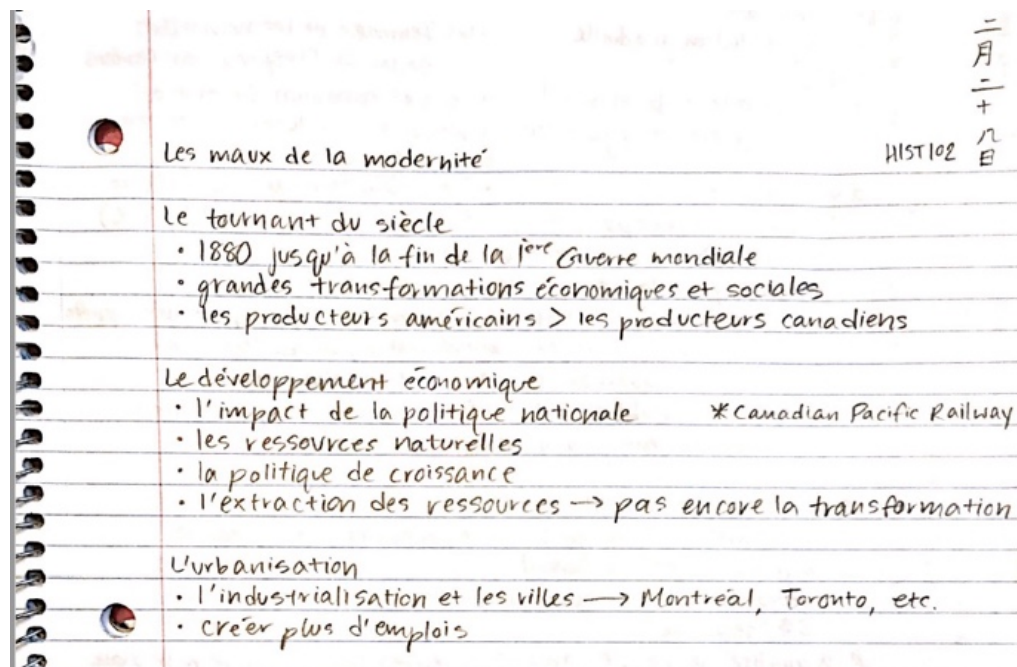 二月二十八日
HIST102
Les maux de la modernité
Le tournant du siècle
· 1880 jusqu'à la fin de la 1ère Guerre mondiale
· grandes transformations économiques et sociales
· les producteurs américains > les producteurs canadiens
Le développement économique
· l'impact de la politique nationale *Canadian Pacific Railway
· les ressources naturelles
· la politique de croissance
· l'extraction des ressources → pas encore la transformation
L'urbanisation
· l'industrialisation et les villes → Montréal, Toronto, etc.
· créer plus d'emplois